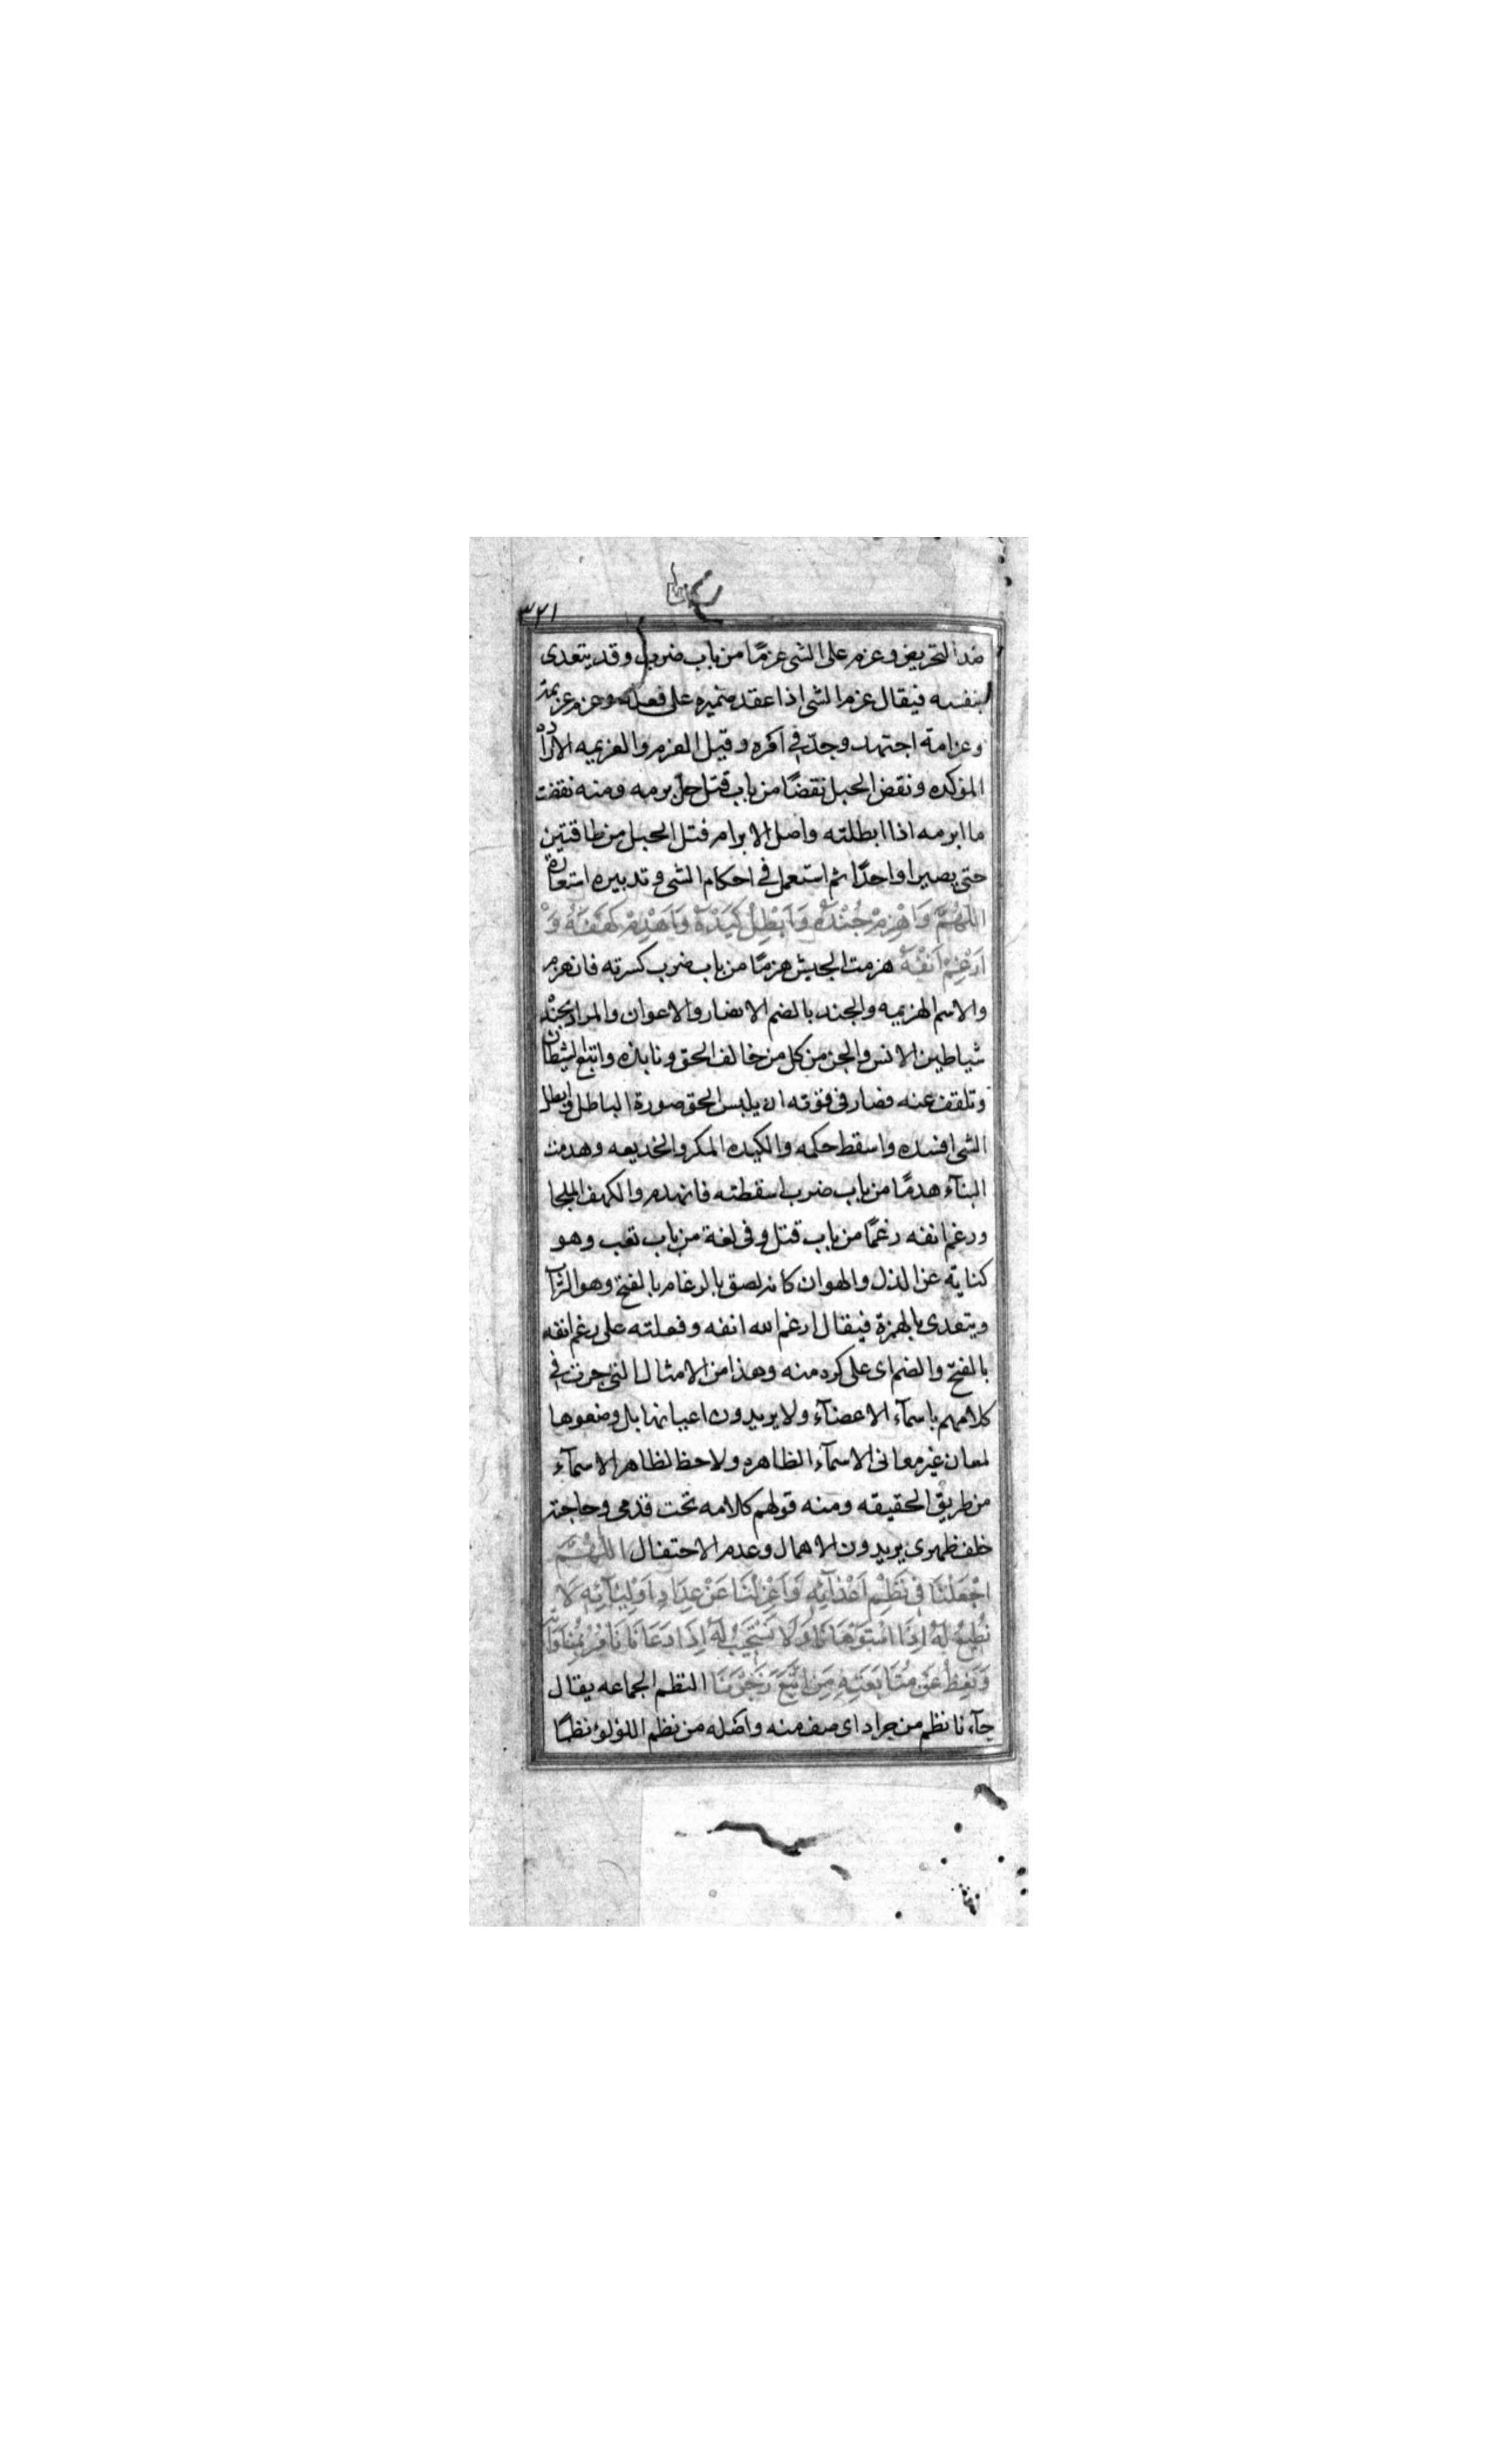 ٣٢١
ضد التحريض وعزم على الشى عزمًا من باب ضرب وقد يتعدى
بنفسه فيقال عزم الشى اذا عقد ضميره على فعله وعزم عزيمة
وعزامة اجتهد وجدّ فى امره وقيل العزم والعزيمه الاراده
المؤكده ونقض الحبل نقضًا من باب قتل حلّ برمه ومنه نقضت
ما ابرمه اذا ابطلته واصل الابرام فتل الحبل من طاقتين
حتى يصيرا واحدًا ثم استعمل فى احكام الشى وتدبيره استعارة
اَللّٰهُمَّ وَاهْزِمْ جُنْدَهُ وَاَبْطِلْ كَيْدَهُ وَاهْدِمْ كَهْفَهُ وَ
اَرْغِمْ اَنْفَهُ هزمت الجيش هزمًا من باب ضرب كسرته فانهزم
والاسم الهزيمه والجند بالضم الانصار والاعوان والمراد بجنده
شياطين الانس والجن من كل من خالف الحق ونابذه واتبع الشيطان
وتلقف عنه فصار فى قوته ان يلبس الحق صورة الباطل وابطل
الشى افسده واسقط حكمه والكيده المكر والخديعه وهدمت
البنآء هدمًا من باب ضرب اسقطته فانهدم والكهف الملجا
ورغم انفه رغمًا من باب قتل وفى لغة من باب تعب وهو
كناية عن الذل والهوان كانه لصق بالرغام بالفتح وهو التراب
ويتعدى بالهمزة فيقال ارغم الله انفه وفعلته على رغم انفه
بالفتح والضم اى على كره منه وهذا من الامثال التى جرت فى
كلامهم باسمآء الاعضآء ولا يريدون اعيانها بل وضعوها
لمعان غير معانى الاسمآء الظاهره ولا حظ لظاهر الاسمآء
من طريق الحقيقه ومنه قولهم كلامه تحت قدمى وحاجته
خلف ظهرى يريدون الاهمال وعدم الاحتفال اَللّٰهُمَّ
اجْعَلْنَا فِى نَظْمِ اَعْدَآئِهِ وَاعْزِلْنَا عَنْ عِدَادِ اَوْلِيَآئِهِ لَا
نُطِيعُ لَهُ اِذَا اسْتَهْوَانَا وَلَا نَسْتَجِيبُ لَهُ اِذَا دَعَانَا نَامُرُ بِمُنَاوَاتِهِ
وَنَعِظُ عَنْ مُتَابَعَتِهِ مَنِ اتَّبَعَ زَجْرَنَا النظم الجماعه يقال
جآءنا نظم من جراد اى صف منه واصله من نظم اللؤلؤ نظمًا